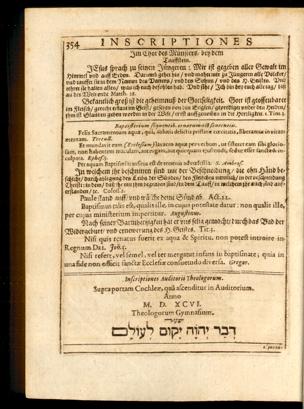 354 INSCRIPTIONES
Im Chor des Münsters, bey dem
Tauffstein.
JEsus sprach zu seinen Jüngeren: Mir ist gegeben aller Gewalt im
Himmel und auff Erden. Darumb gehet hin/ und machet mir zu Jüngeren alle Völcker/
und tauffet sie in dem Namen des Vatters/ und des Sohns/ und des H. Geistes. Und
lehret sie halten alles/ was ich euch befohlen hab. Und sihe/ Ich bin bey euch alle tag/ biß
an der Welt ende. Matth. 28.
Bekantlich groß ist die geheimnuß der Gottseligkeit. Gott ist geoffenbaret
im fleisch/ gerecht im Geist/ den Englen/ den Heiden/
ihm ist Glauben geben worden in der Welt/ er ist auffgenommen in die Herrligkeit. 1. Tim. 3.
Felix Sacramentum aquæ, quia, ablutis delictis pristinæ cæcitatis, liberamur in vitam
æternam. Tertull.
Et mundavit eam (Ecclesiam) lavacro aquæ per verbum, ut sisteret eam sibi gloriosam,
non habentem maculam, aut rugam, aut quicquam ejusmodi, sed ut esset sancta & inculpata.
Ephes. 5.
S. Ambros.
In welchem ihr beschnitten sind mit der Beschneidung/ die ohn Händ beschicht/
durch ablegung des Leibs der Sünden/ des Fleisches nämlich/ in der Beschneidung
Christi: in dem/ daß ihr mit ihm begraben sind/ in dem Tauff/ in welchem ihr auch sind aufferstanden/
&c. Coloss. 2.
Paule stand auff/ und wäsche deine Sünd ab. Act. 22.
Baptismus talis est, qualis ille, in cujus potestate datur: non qualis ille,
per cujus ministerium impertitur. Augustinus.
Nach seiner Barmhertzigkeit hat er uns selig gemacht/ durch das Bad der
Widergeburt/ und ernewerung des H. Geistes. Tit. 3.
Nisi quis renatus fuerit ex aqua & Spiritu, non potest introire in
Regnum Dei. Joh. 3.
Nil refert, vel semel, vel ter mergatur infans in baptismate; quia in
una fide non officit sanctæ Ecclesiæ consuetudo diversa. Gregor.
Inscriptiones Auditorii Theologorum.
Supra portam Cochleæ, quâ ascenditur in Auditorium.
Anno
M. D. XCVI.
Theologorum Gymnasium.
דבר יהוה יקום לעולם